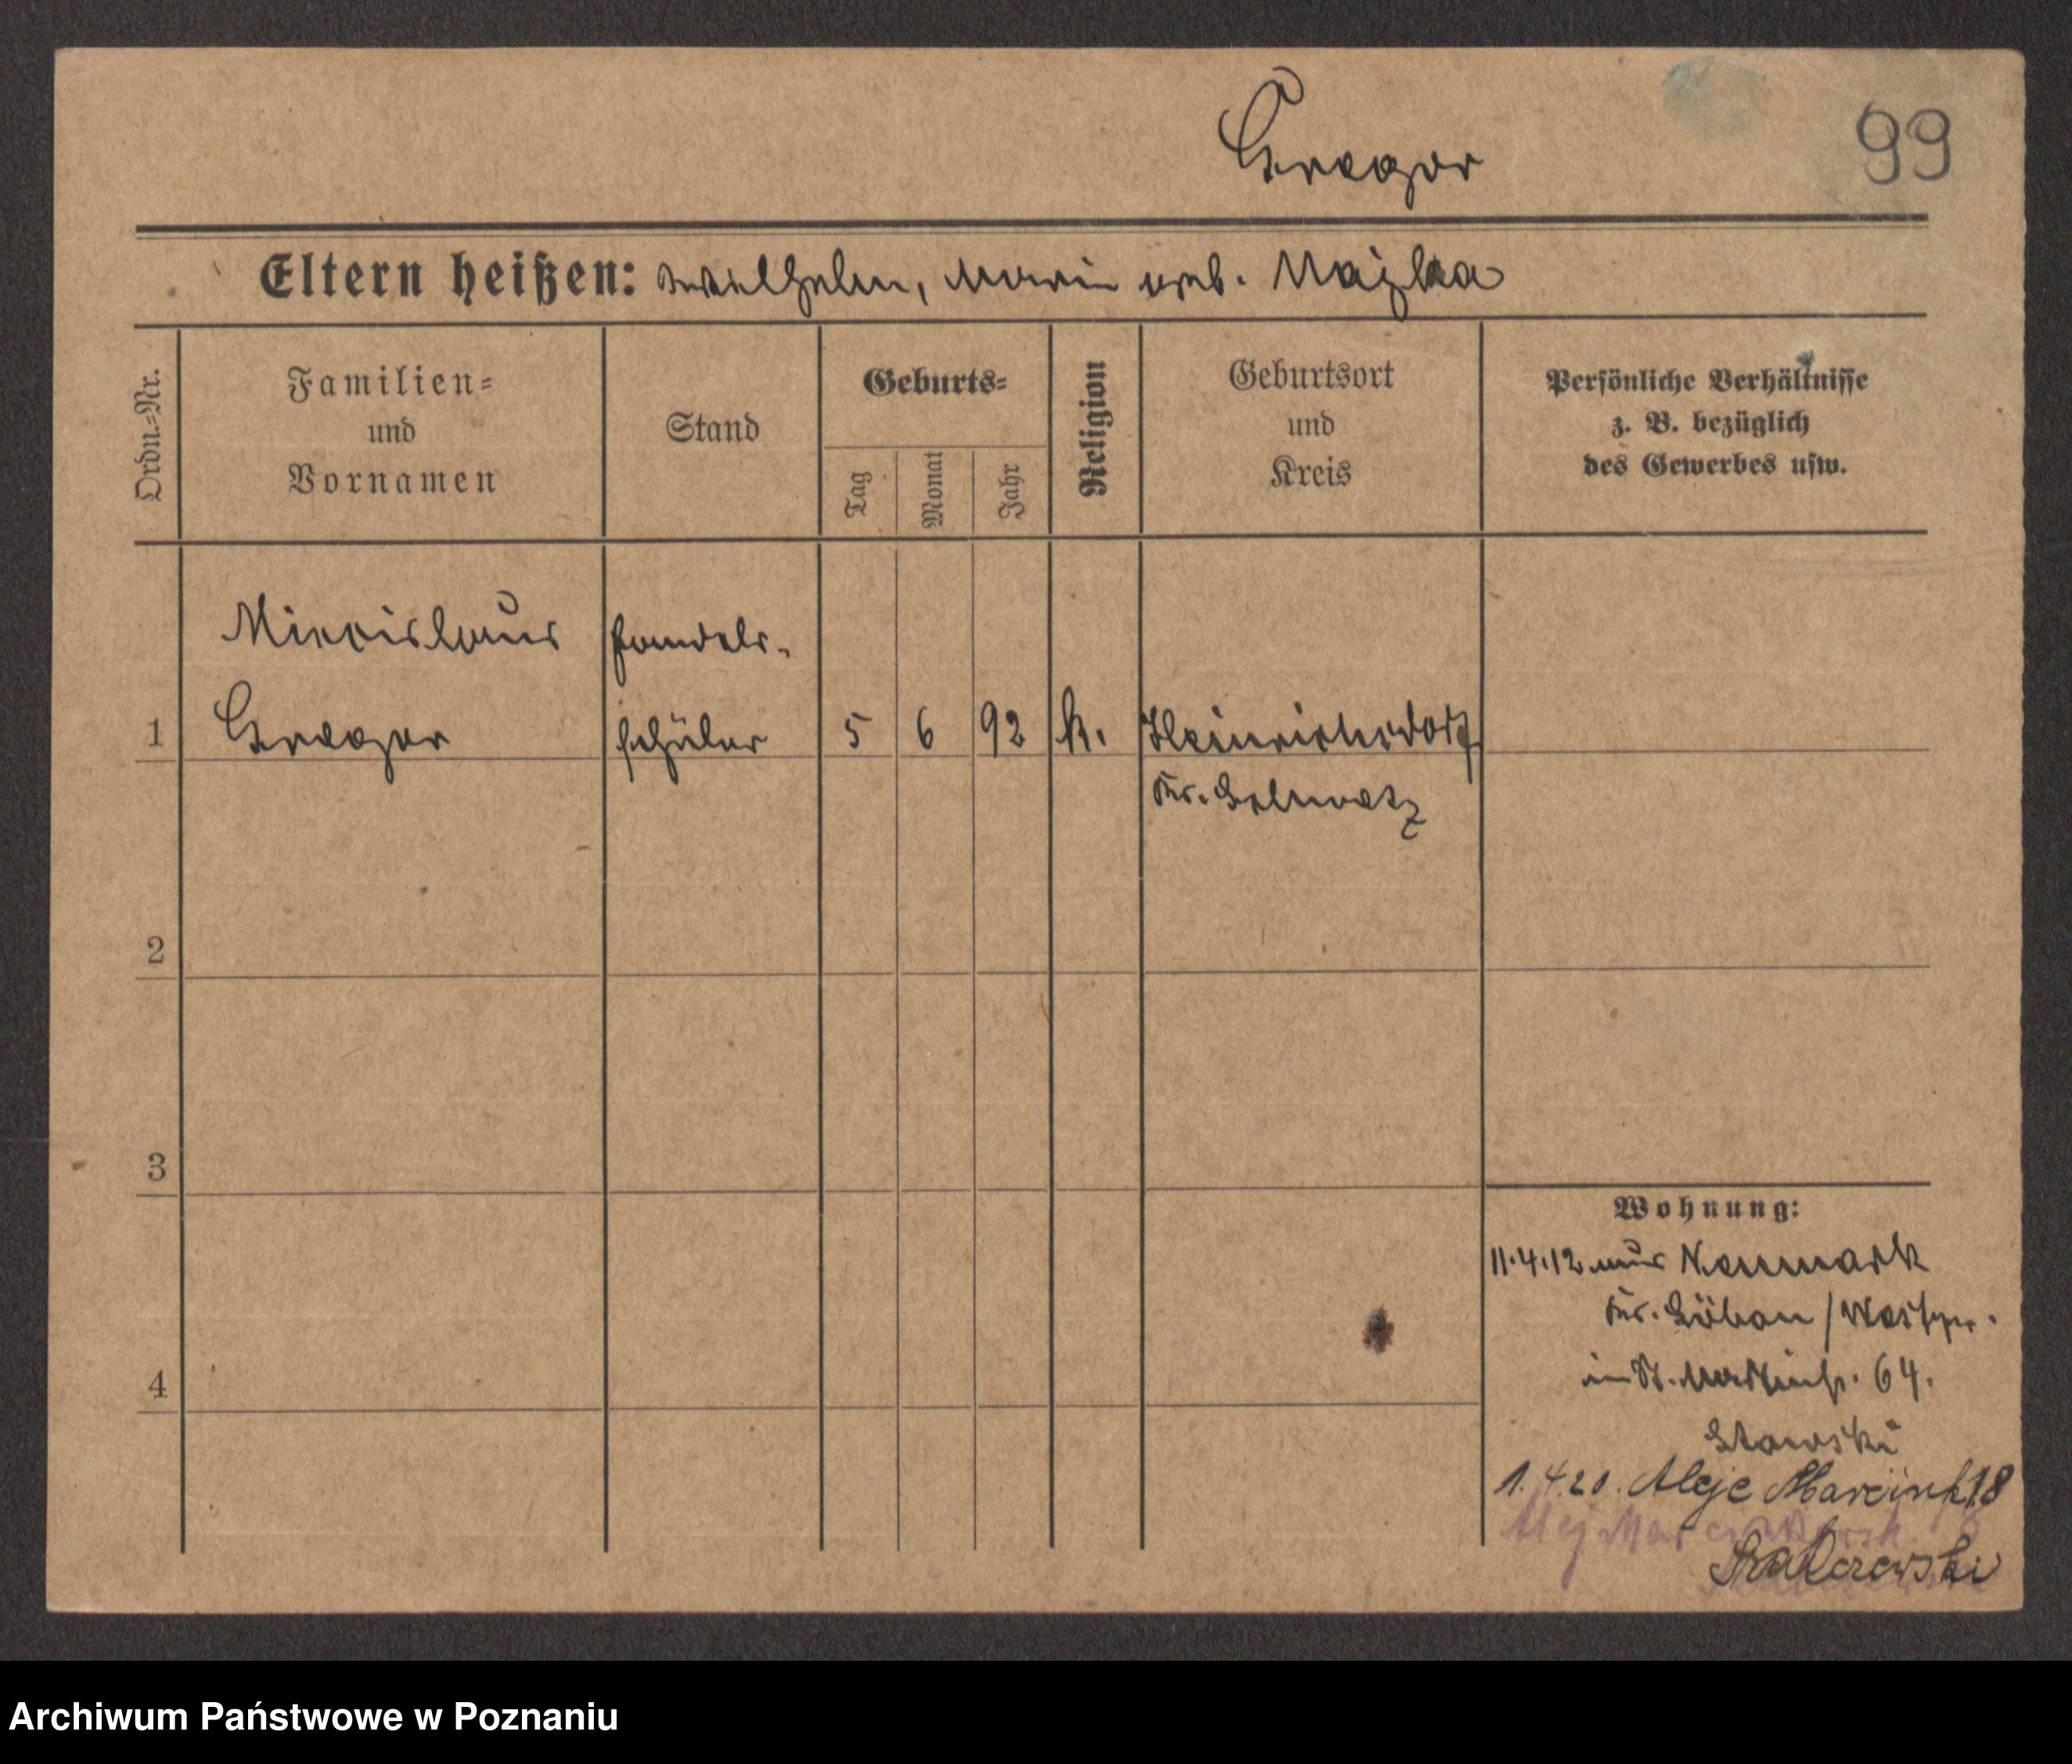 Gregor
99
Eltern heißen: Wilhelm, Maria geb. Majzka
Ordn.=Nr.
Familien=
und
Vornamen
Stand
Geburts=
Tag
Monat
Jahr
Religion
Geburtsort
und
Kreis
Persönliche Verhältnisse
z. B. bezüglich
des Gewerbes usw.
Miecislaus
Gregor
Handels-
schüler
1
5
6
92
k.
Heinrichsdorf
Kr. Schwetz
2
3
4
Wohnung:
11.4.12 aus Neumark
Kr. Löbau / Westpr.
in St. Martinstr. 64.
1.4.20. Aleje Marcink 18